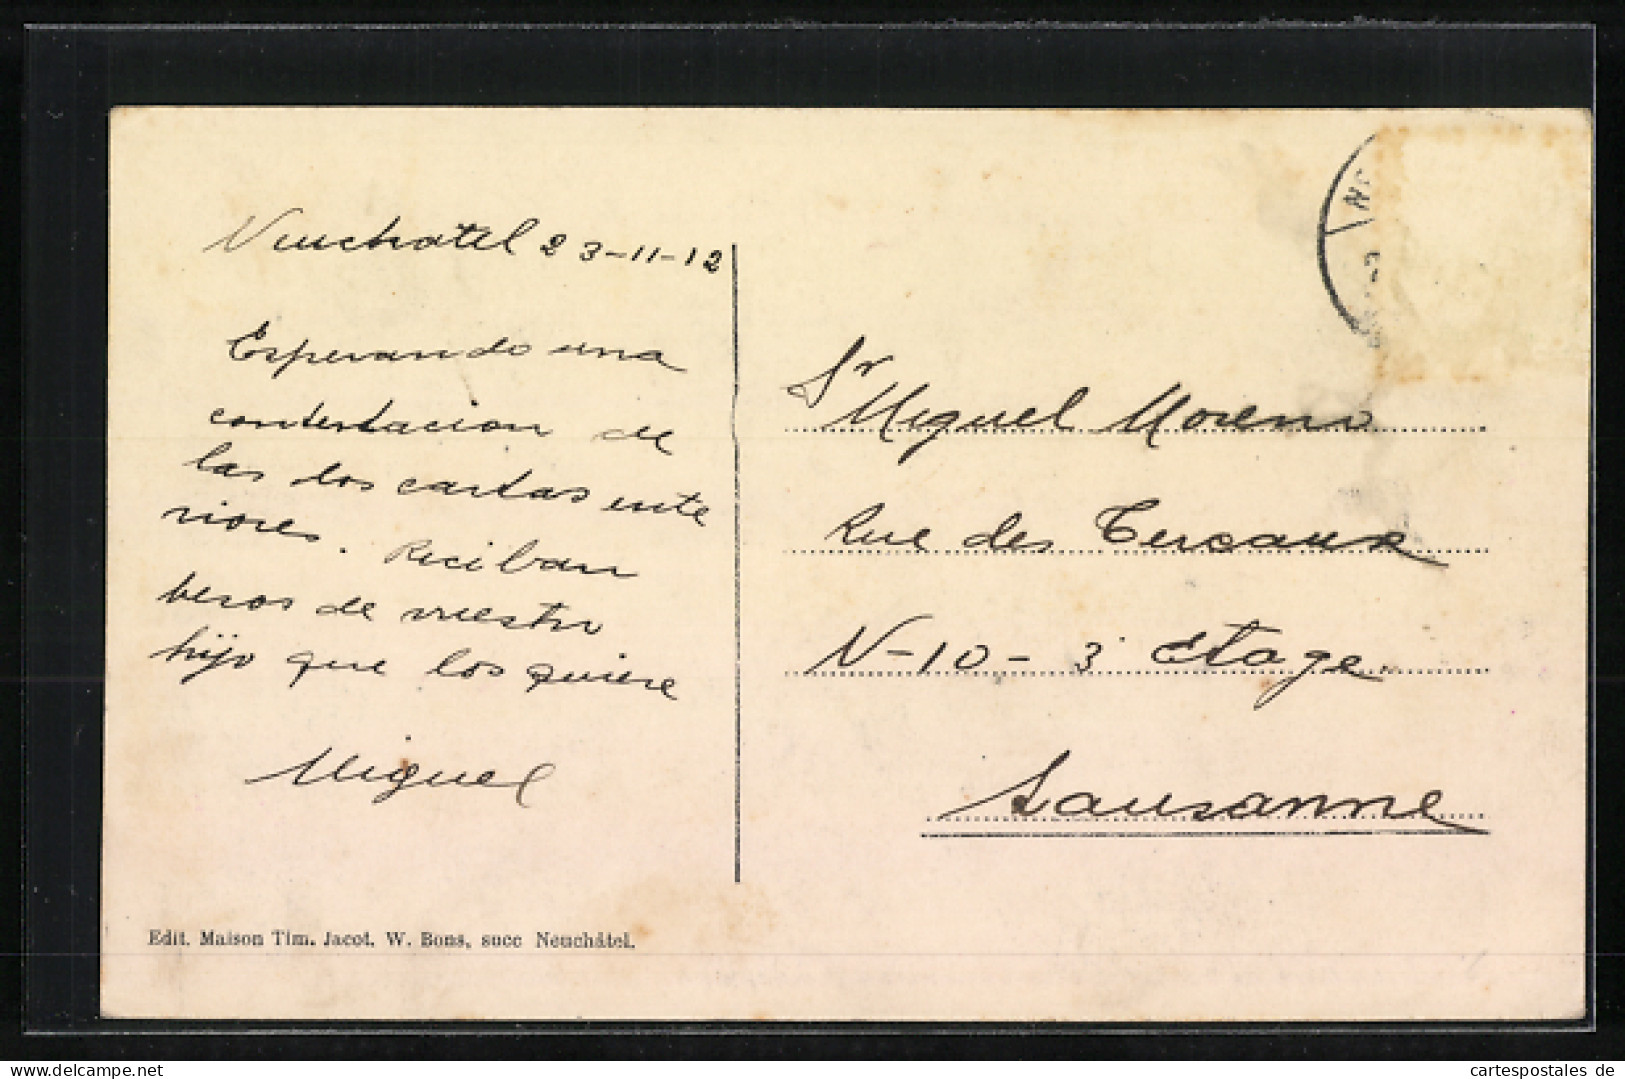 Neuchatel 23-11-12
Esperando una
contestacion de
las dos cartas ente
riores. Reciban
besos de vuestro
hijo que los quiere
Miguel
Edit. Maison Tim. Jacot. W. Bons, succ Neuchâtel.
Sr Miguel Moreno
Rue des Tereaux
N-10-3 etage
Lausanne
www.cartespostales.de
cartespostales de